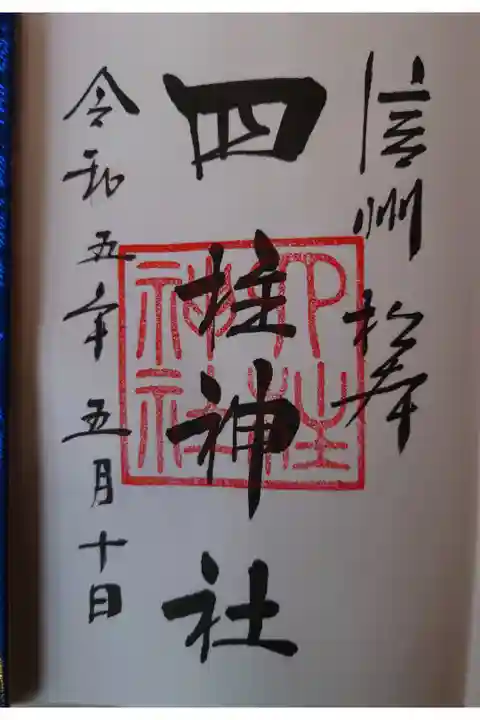 信州 松本
四柱神社
四柱神社
令和五年五月十日